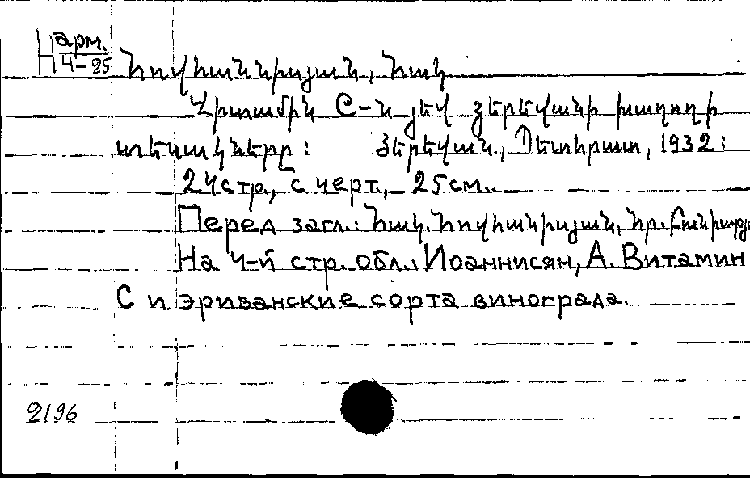 Н арм.
4-25
Հովհաննիսյան, Հակ
Վիտամին C-ն յեվ յերեվանի խաղողի
տեսակները: Յերեվան., Պետհրատ, 1932:
24стр., с черт., 25см.
Перед загл.: Հակ. Հովհանիսյան, Հր.
На 4-й стр. обл.: Иоаннисян, А. Витамин
С и эриванские сорта винограда.
2196